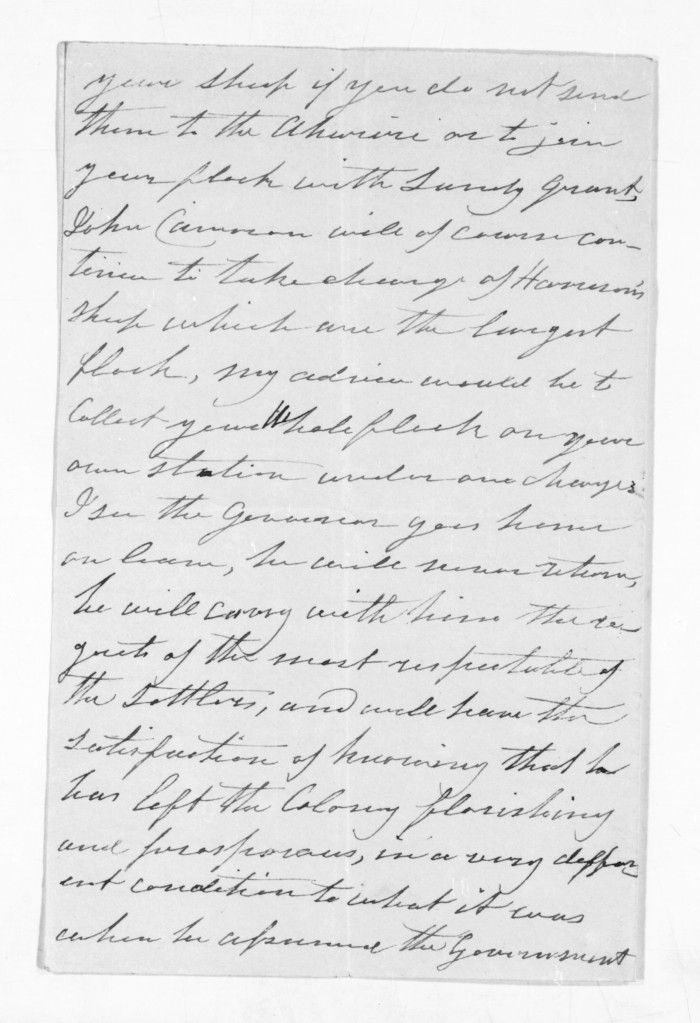 your sheep if you do not send
them to the Ahuriri or to join
your flock with Sandy Grant,
John Cameron will of course con-
tinue to take charge of Harrison's
sheep which are the largest
flock, my advice would be to
Collect your Whole flock on your
own station under one charge.
I see the Governor goes home
on leave, he will never return,
he will carry with him the re
grets of the most respectable of
the Settlers, and will have the
satisfaction of knowing that he
has left the Colony florishing
and prosporous, in a very differ
ent condition to what it was
when he assumed the Government